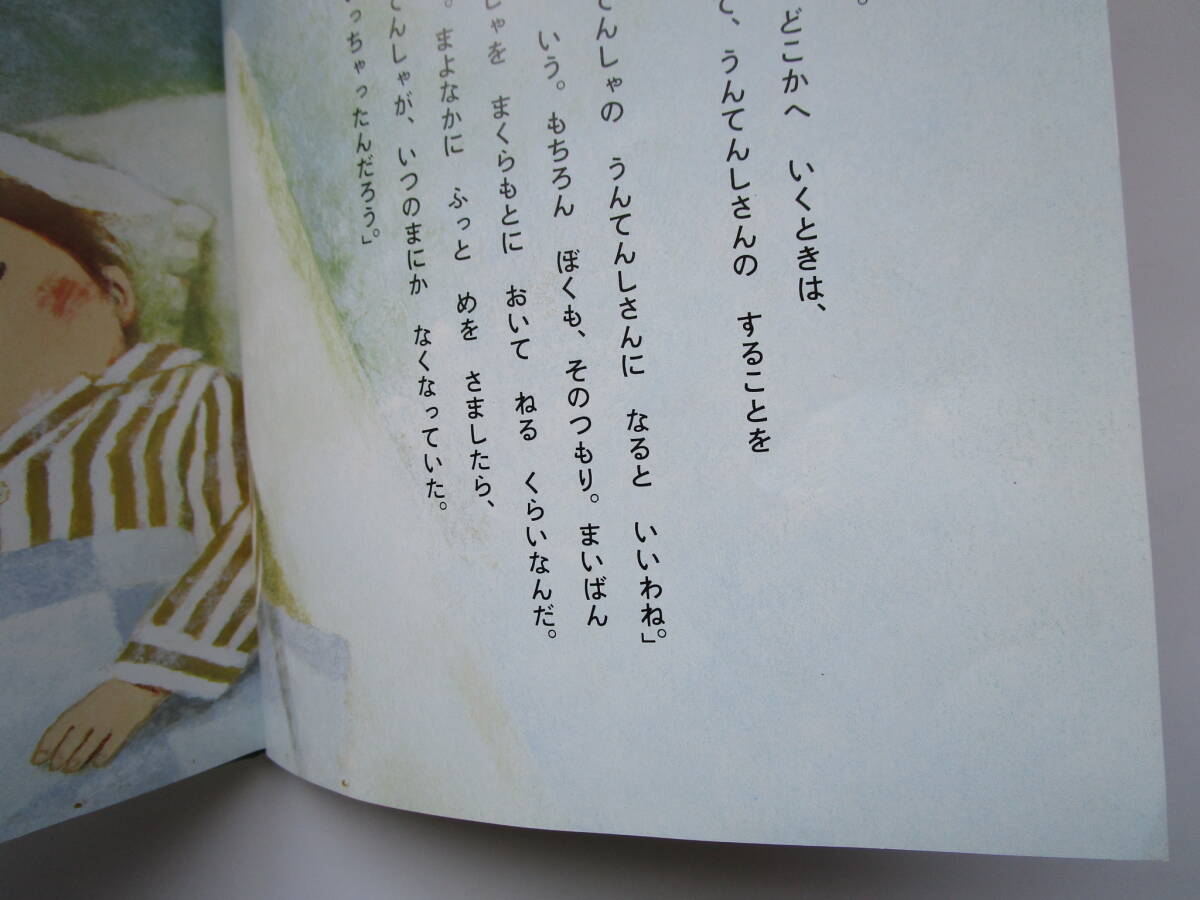 。
どこかへ　いくときは、
て、うんてんしさんの　することを
てんしゃの　うんてんしさんに　なると　いいわね。」
いう。もちろん　ぼくも、そのつもり。まいばん
しゃを　まくらもとに　おいて　ねる　くらいなんだ。
。まよなかに　ふっと　めを　さましたら、
てんしゃが、いつのまにか　なくなっていた。
っちゃったんだろう。」